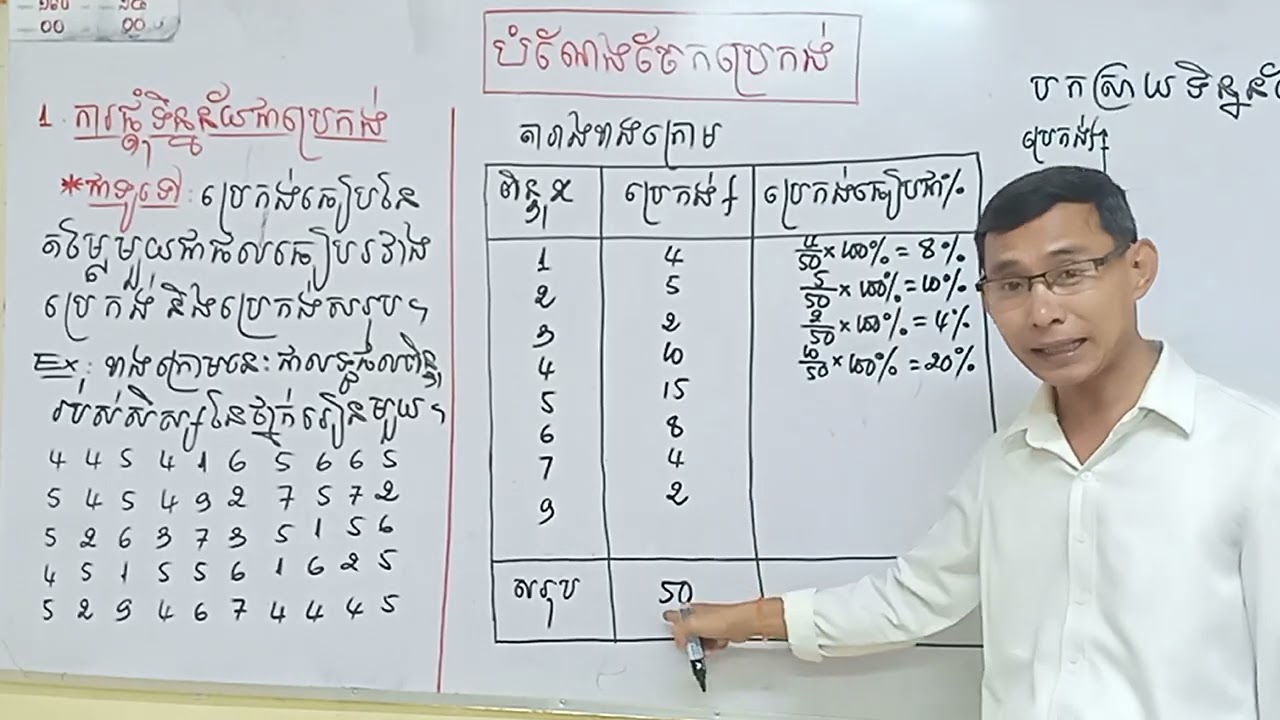 ១៥០ ១៥
០០ ០០
បំណែងចែកប្រេកង់
1. ការផ្តុំទិន្នន័យជាប្រេកង់
*ជាទូទៅ : ប្រេកង់ធៀបនៃ
តម្លៃមួយជាផលធៀបរវាង
ប្រេកង់ និងប្រេកង់សរុប។
Ex : ខាងក្រោមនេះជាលទ្ធផលពិន្ទុ
របស់សិស្សនៃថ្នាក់រៀនមួយ។
4 4 5 4 1 6 5 6 6 5
5 4 5 4 9 2 7 5 7 2
5 2 6 3 7 3 5 1 5 6
4 5 1 5 5 6 1 6 2 5
5 2 9 4 6 7 4 4 4 5
តារាងខាងក្រោម
ពិន្ទុ x ប្រេកង់ f ប្រេកង់ធៀបជា%
1 4 4/50 × 100% = 8%
2 5 5/50 × 100% = 10%
3 2 2/50 × 100% = 4%
4 10 10/50 × 100% = 20%
5 15
6 8
7 4
9 2
សរុប 50
បកស្រាយទិន្នន័
ប្រេកង់ f